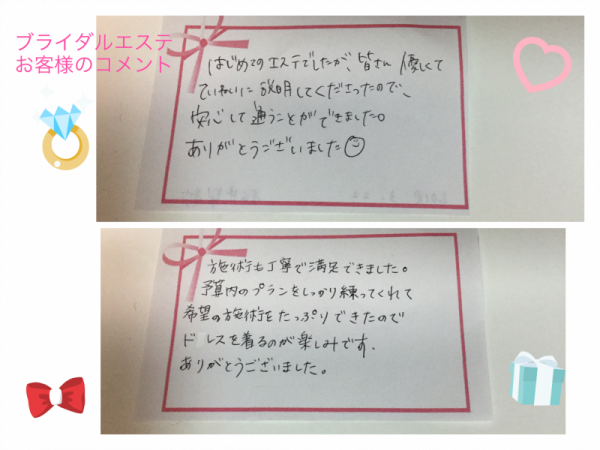 ブライダルエステ
お客様のコメント
はじめてのエステでしたが、皆さん 優しくて
ていねいに説明してくださったので、
安心して通うことができました。
ありがとうございました
施術も丁寧で満足できました。
予算内のプランをしっかり練ってくれて
希望の施術をたっぷりできたので
ドレスを着るのが楽しみです.
ありがとうございました。